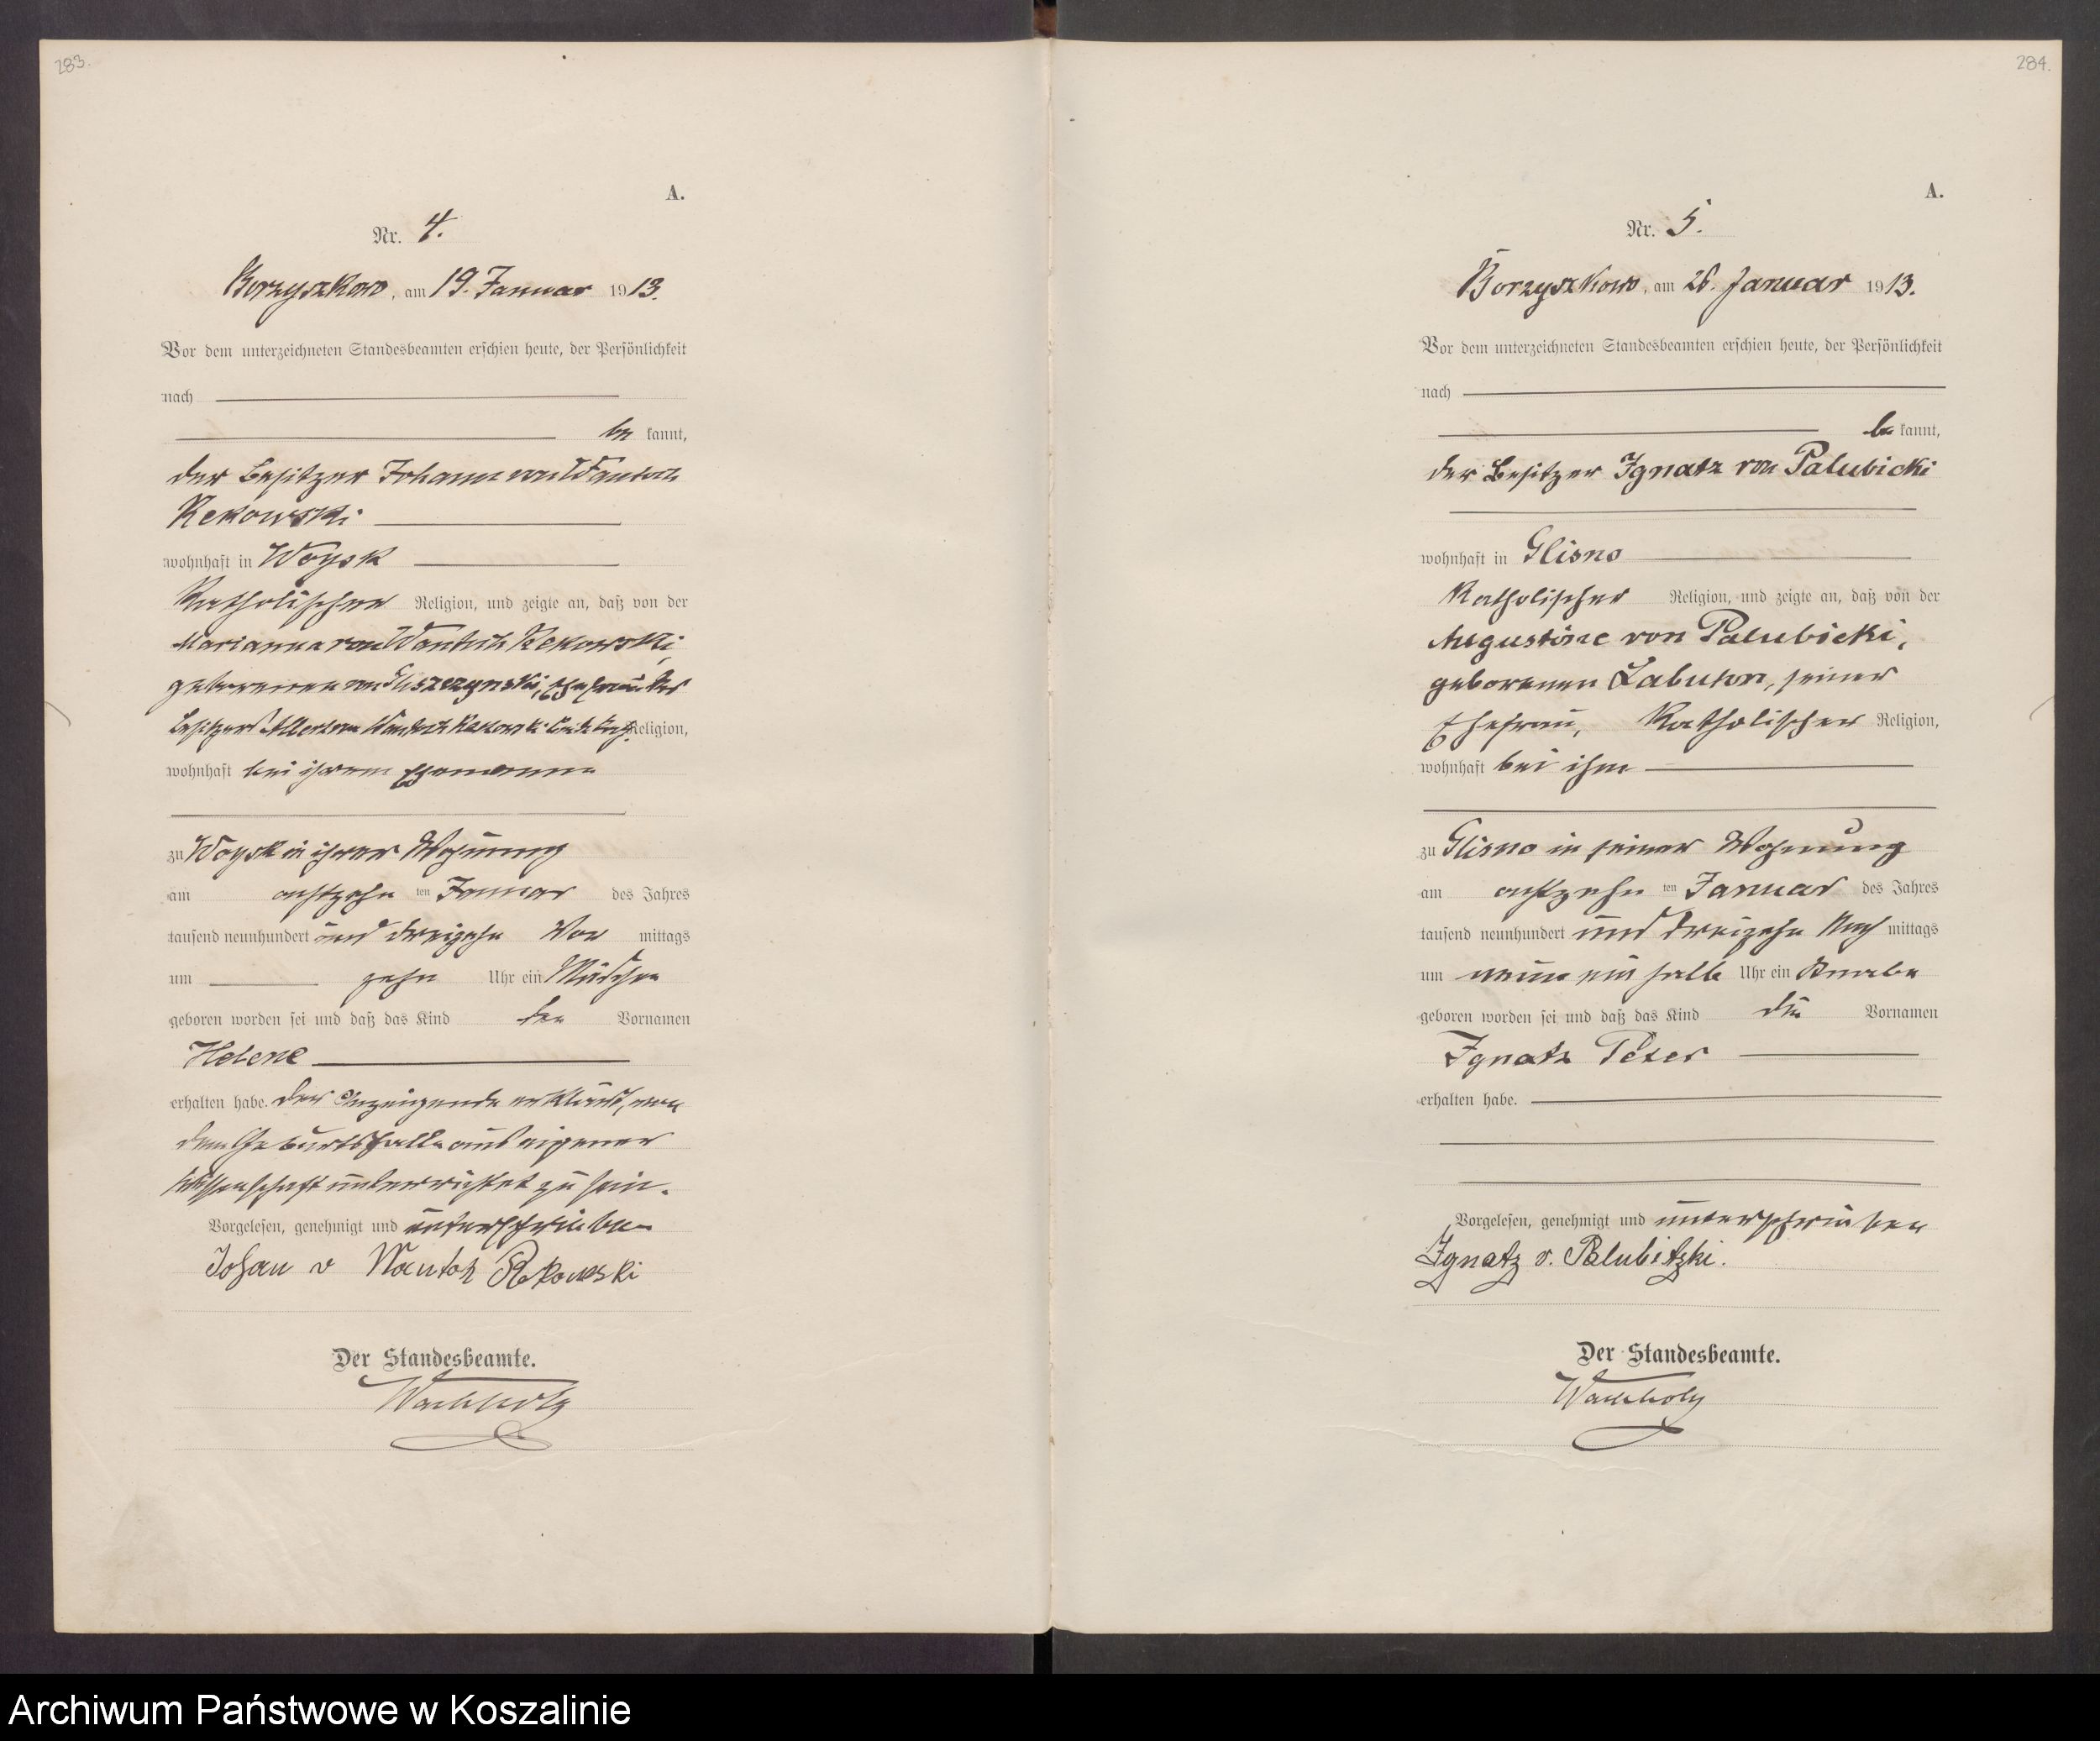 283.
A.
Nr. 4.
Borzyszkowo, am 19. Januar 1913.
Vor dem unterzeichneten Standesbeamten erschien heute, der Persönlichkeit
nach
be kannt,
der Besitzer Johann von Wantoch
Rekowski
wohnhaft in Woysk
katholischer Religion, und zeigte an, daß von der
Marianna von Wantoch Rekowski,
geborenen von Gliszczynski, Ehefrau des
Besitzers von Wantoch Rekowski Religion,
wohnhaft bei ihrem Ehemanne
zu Woysk in ihrer Wohnung
am achtzehn ten Januar des Jahres
tausend neunhundert und dreizehn Vor mittags
um zehn Uhr ein Mädchen
geboren worden sei und daß das Kind den Vornamen
Helene
erhalten habe. Der Anzeigende erklärt, von
dem Geburtsfalle aus eigener
Wissenschaft unterrichtet zu sein.
Vorgelesen, genehmigt und unterschrieben
Johan v Wantoh Rekowski
Der Standesbeamte.
Wachholz
284.
A.
Nr. 5.
Borzyszkowo, am 26. Januar 1913.
Vor dem unterzeichneten Standesbeamten erschien heute, der Persönlichkeit
nach
be kannt,
der Besitzer Ignatz von Palubicki
wohnhaft in Glisno
katholischer Religion, und zeigte an, daß von der
Augustine von Palubicki,
geborenen Labuhn, seiner
Ehefrau, katholischer Religion,
wohnhaft bei ihm
zu Glisno in seiner Wohnung
am achtzehn ten Januar des Jahres
tausend neunhundert und dreizehn Nach mittags
um neun ein halb Uhr ein Knabe
geboren worden sei und daß das Kind die Vornamen
Ignatz Peter
erhalten habe.
Vorgelesen, genehmigt und unterschrieben
Ignatz v. Palubitzki.
Der Standesbeamte.
Wachholz
Archiwum Państwowe w Koszalinie